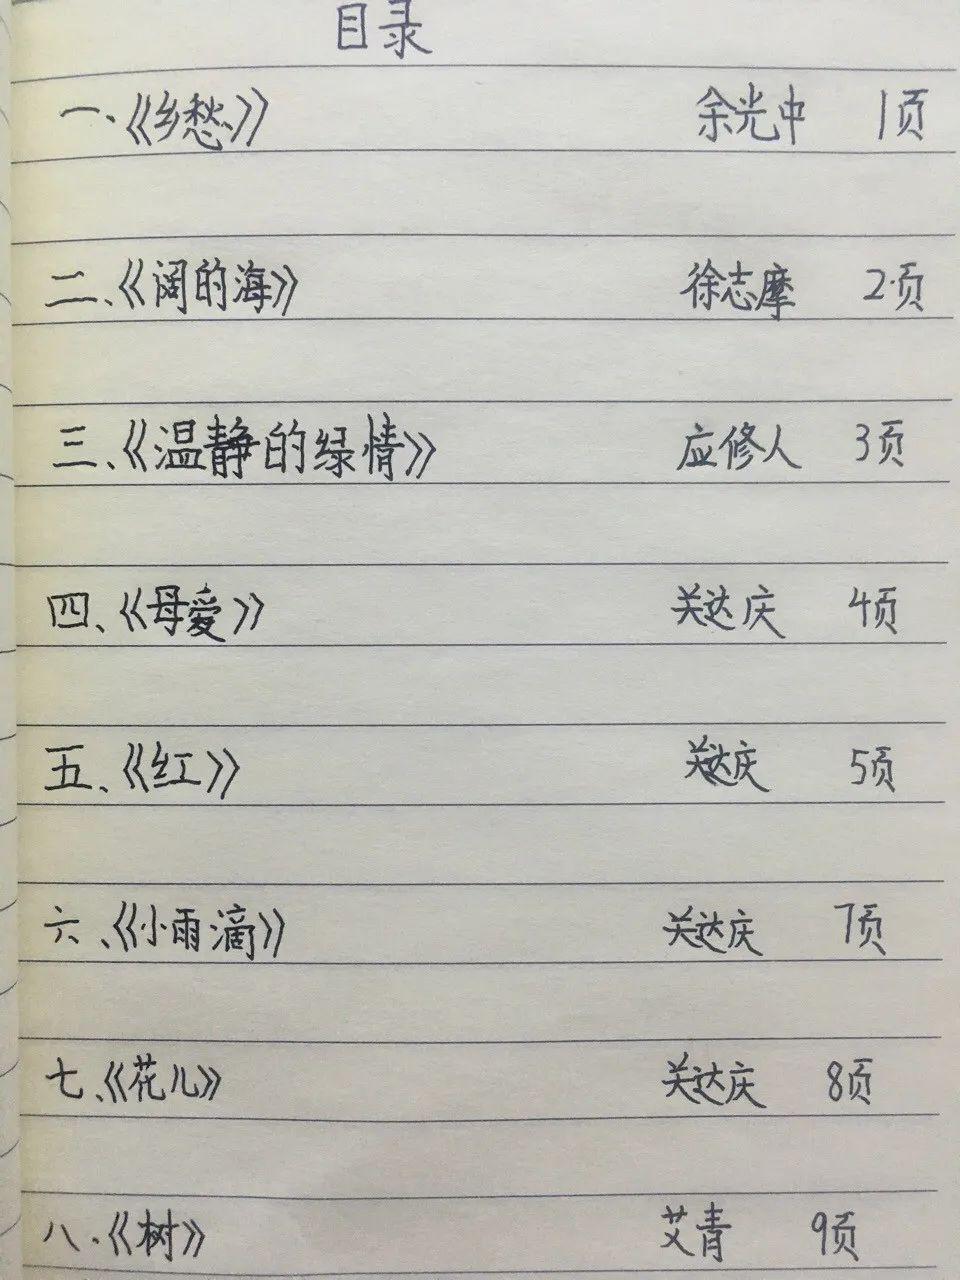 目录
一.《乡愁》 余光中 1页
二、《阔的海》 徐志摩 2页
三、《温静的绿情》 应修人 3页
四、《母爱》 关达庆 4页
五、《红》 关达庆 5页
六、《小雨滴》 关达庆 7页
七、《花儿》 关达庆 8页
八.《树》 艾青 9页